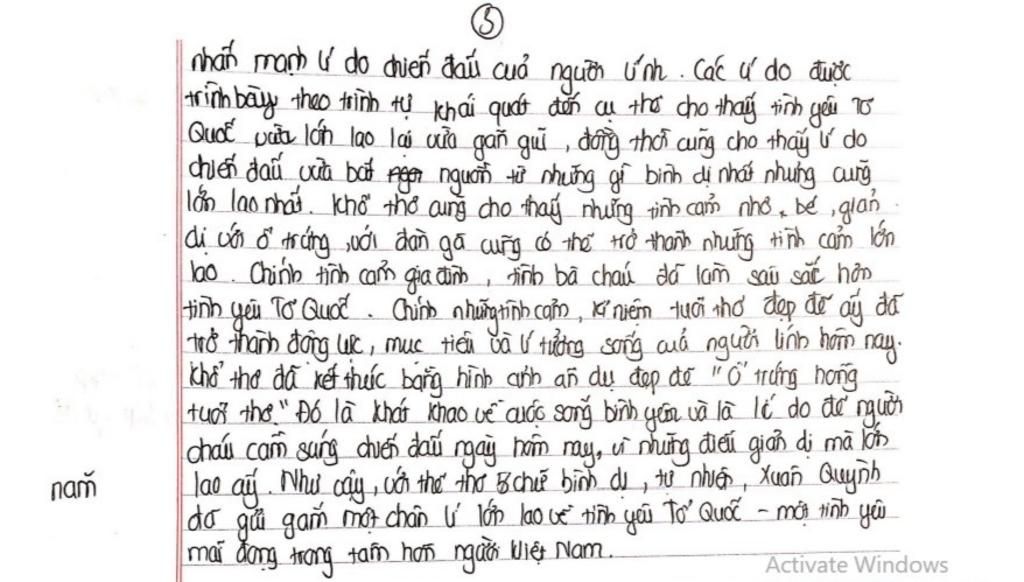 5
nhấn mạnh lí do chiến đấu của người lính. Các lí do được
trình bày theo trình tự khái quát đến cụ thể cho thấy tình yêu Tổ
Quốc vừa lớn lao lại vừa gần gũi, đồng thời cũng cho thấy lí do
chiến đấu vừa bắt nguồn từ những gì bình dị nhất nhưng cũng
lớn lao nhất. Khổ thơ cũng cho thấy những tình cảm nhỏ, bé, giản
dị với ổ trứng, với đàn gà cũng có thể trở thành những tình cảm lớn
lao. Chính tình cảm gia đình, tình bà cháu đã làm sâu sắc hơn
tình yêu Tổ Quốc. Chính những tình cảm, kỉ niệm tuổi thơ đẹp đẽ ấy đã
trở thành động lực, mục tiêu và lí tưởng sống của người lính hôm nay.
Khổ thơ đã kết thúc bằng hình ảnh ẩn dụ đẹp đẽ "Ổ trứng hồng
tuổi thơ." Đó là khát khao về cuộc sống bình yên và là lí do để người
cháu cầm súng chiến đấu ngày hôm nay, vì những điều giản dị mà lớn
năm lao ấy. Như vậy, với thể thơ 5 chữ bình dị, tự nhiên, Xuân Quỳnh
đã gửi gắm một chân lí lớn lao về tình yêu Tổ Quốc - một tình yêu
mãi đọng trong tâm hồn người Việt Nam.
Activate Windows